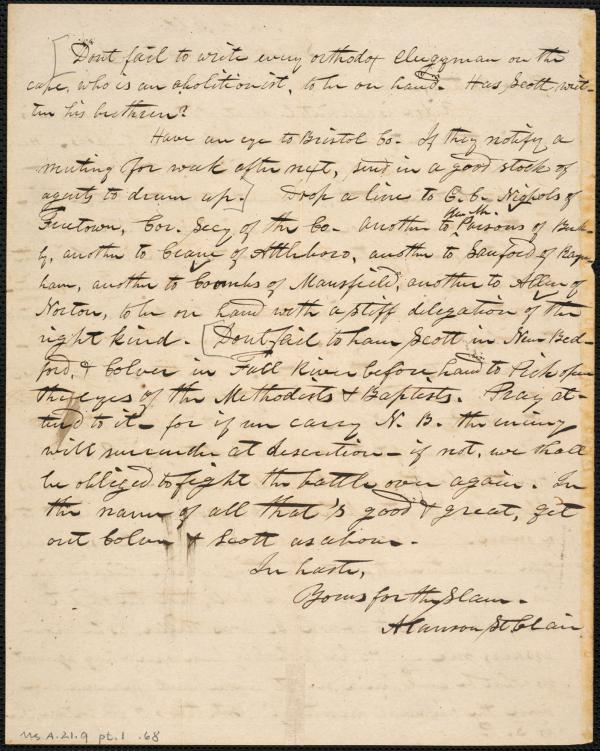 [Dont fail to write every orthodox clergyman on the
cape, who is an abolitionist, to be on hand. Has Scott writ-
ten his brethren?
Have an eye to Bristol Co. If they notify a
meeting for week after next, send in a good stock of
agents to drum up.] Drop a line to C. C. Nichols of
Freetown, Cor. Secy of the Co. another to Rev. Mr. Parsons of Berk-
ly, another to Crane of Attleboro, another to Sanford of Rayn
ham, another to Coombs of Mansfield, another to Allen of
Norton, to be on hand with a stiff delegation of the
right kind. [Dont fail to have Scott in New Bed-
ford, & Colver in Fall River before hand to pick open
the eyes of the Methodists & Baptists. Pray at-
tend to it – for if we carry N. B. the enemy
will surrender at discretion – if not, we shall
be obliged to fight the battle over again. In
the name of all that's good & great, get
out Colver & Scott as above.
In haste,
Yours for the Slave.
Alanson St Clair
Ms A.21.9 pt.1 .68